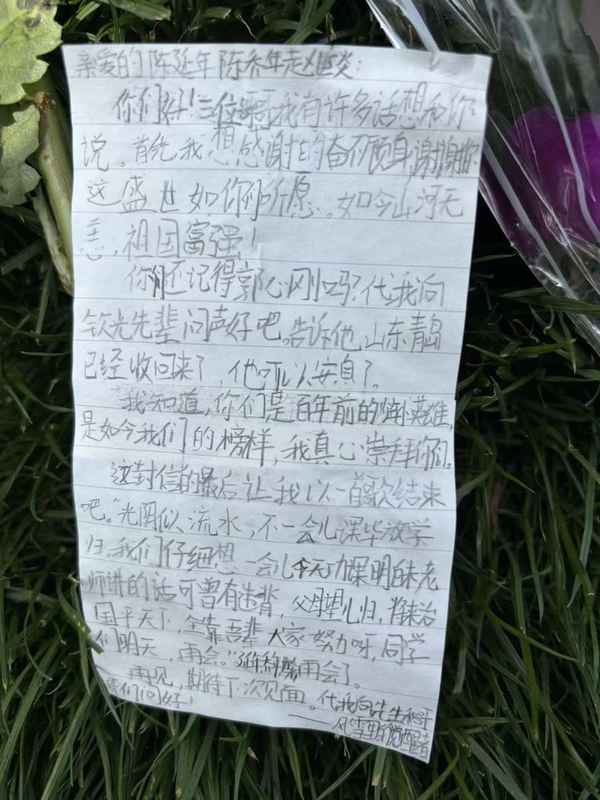 亲爱的陈延年 陈乔年 赵世炎:
你们好!三位 我有许多话想和你
说。首先我想感谢 的奋不顾身 谢谢
这盛世如你们所愿。如今山河无
恙,祖国富强!
你 还记得郭心刚吗?代我向
钦光先辈问声好吧。告诉他,山东青岛
已经收回来了,他可以安息了。
我知道,你们是百年前的 英雄,
是如今我们的榜样,我真心崇拜你们。
这封信的最后让我以一首歌结束
吧。"光阴似流水,不一会儿课毕放学
归,我们仔细想一会儿今天功课明白未老
师讲的话可曾有违背 父母望儿归,将来治
国平天下,全靠吾辈 大家努力呀,同学
们明天,再会。" 再会了。
再见,期待下次见面。代我向 先生
们问好!